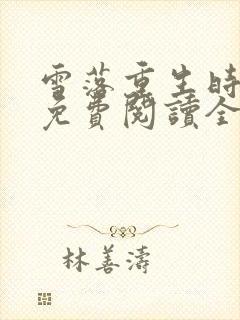 雪落重生時
免費閱讀全
林善濤